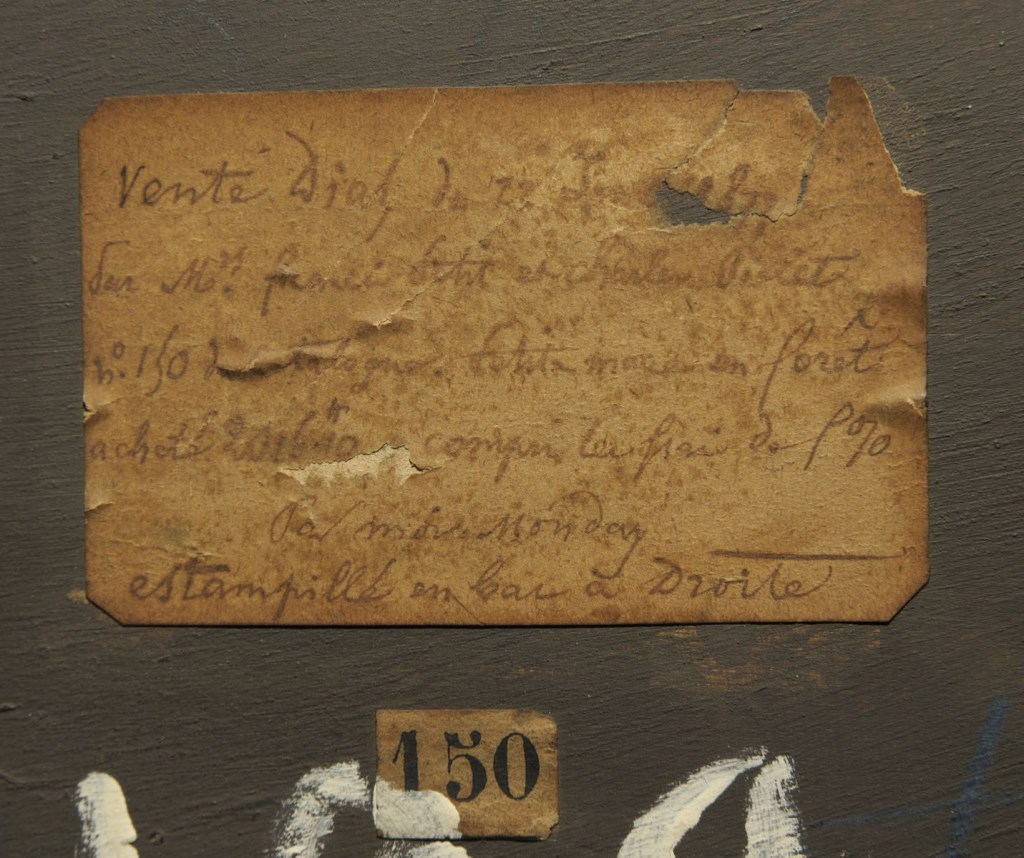 Vente Diaz du 22
Sur Mrs francis Petit et charles Pillet
no. 150 du catalogue. Petite mare en forêt
acheté compri les frai de 5%
Par moi Monday
estampillé en bas à Droite
150